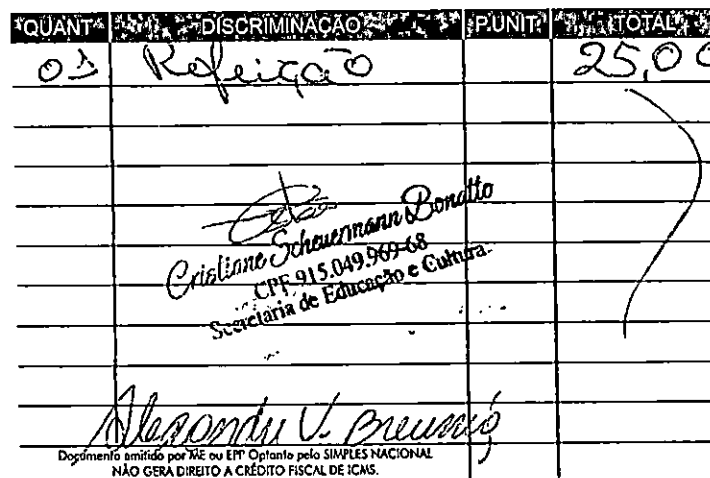 QUANT. DISCRIMINAÇÃO P.UNIT. TOTAL
01 Refeição 25,00
Cristiane Scheuermann Bonatto
CPF 915.049.969-68
Secretária de Educação e Cultura.
Alexandre V. Breunig
Documento emitido por ME ou EPP Optante pelo SIMPLES NACIONAL
NÃO GERA DIREITO A CRÉDITO FISCAL DE ICMS.